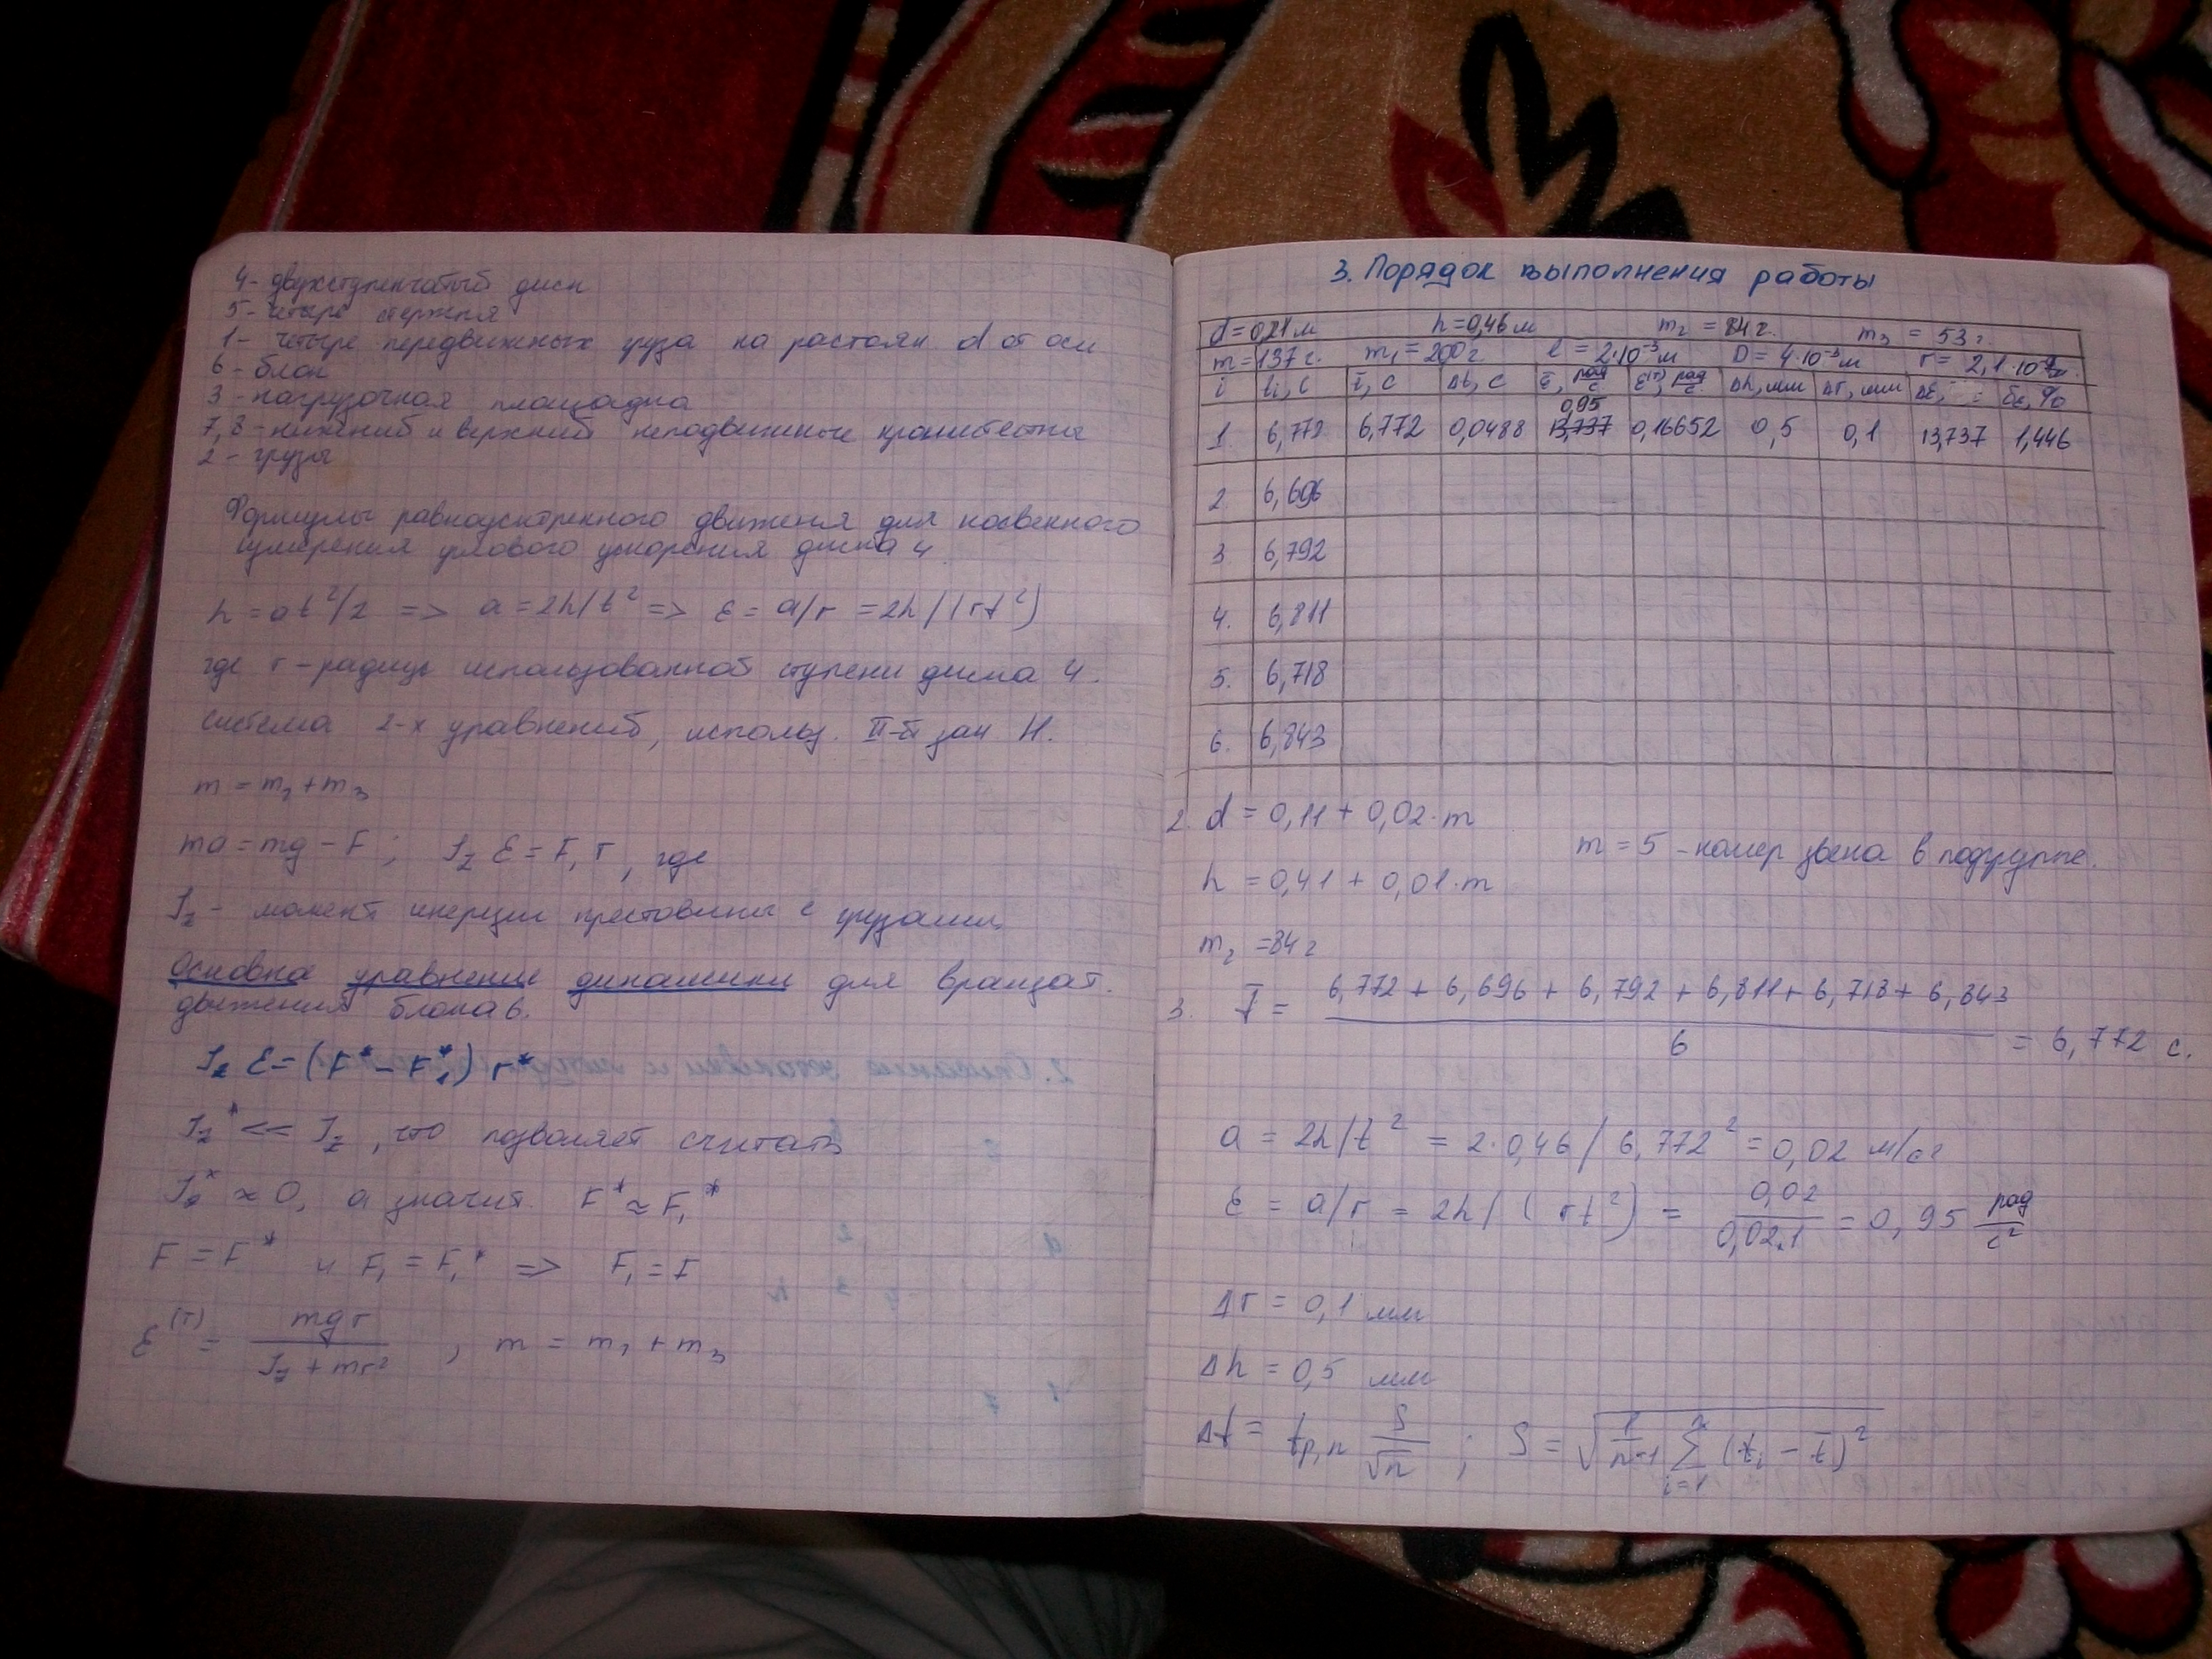 4- двухступенчатый диск
5- четыре стержня
1- четыре передвижных груза на растоян d от оси
6- блок
3- нагрузочная площадка
7,8- нижний и верхний неподвижные кронштейны
2- грузы
Формулы равноускоренного движения для косвенного
измерения углового ускорения диска 4
h = at²/2 => a = 2h/t² => ε = a/r = 2h/(rt²)
где r - радиус использованной ступени диска 4.
система 2-х уравнений, использ. II-й зак Н.
m = m₂ + m₃
ma = mg - F ; J_z ε = F₁ r , где
J_z - момент инерции крестовины с грузами
Основное уравнение динамики для вращат.
движения блока 6.
J_z ε = (F* - F₁*) r*
J_z* << J_z , что позволяет считать
J_z* ≈ 0, а значит F* ≈ F₁*
F = F* и F₁ = F₁* => F₁ = F
ε⁽ᵀ⁾ = mgr / (J_z + mr²) , m = m₂ + m₃
3. Порядок выполнения работы
d = 0,21 м h = 0,46 м m₂ = 84 г. m₃ = 53 г.
m = 137 г. m₁ = 200 г ℓ = 2·10⁻³ м D = 4·10⁻³ м r = 2,1·10
i tᵢ, с t̄, с Δt, с ε̄, рад/с ε⁽ᵀ⁾, рад/с Δh, мм Δr, мм Δε, δε, %
0,95
1. 6,772 6,772 0,0488 13,737 0,16652 0,5 0,1 13,737 1,446
2 6,696
3 6,792
4. 6,811
5. 6,718
6. 6,843
2. d = 0,11 + 0,02·m
m = 5 - номер звена в подгруппе.
h = 0,41 + 0,01·m
m₂ = 84 г
3. t̄ = (6,772 + 6,696 + 6,792 + 6,811 + 6,718 + 6,843) / 6 = 6,772 с.
a = 2h/t² = 2·0,46 / 6,772² = 0,02 м/с²
ε = a/r = 2h/(rt²) = 0,02 / 0,021 = 0,95 рад/с²
Δr = 0,1 мм
Δh = 0,5 мм
Δt = t_{p,n} S/√n ; S = √(1/(n-1) Σ_{i=1}^{n} (tᵢ - t̄)²)